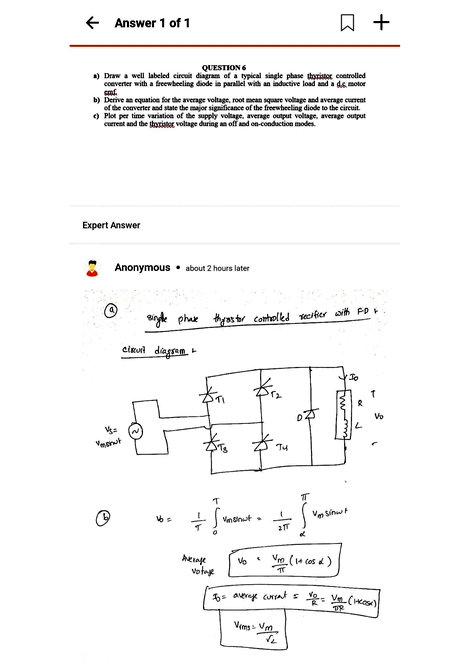 Answer 1 of 1
QUESTION 6
a) Draw a well labeled circuit diagram of a typical single phase thyristor controlled
converter with a freewheeling diode in parallel with an inductive load and a d.c. motor
emf.
b) Derive an equation for the average voltage, root mean square voltage and average current
of the converter and state the major significance of the freewheeling diode to the circuit.
c) Plot per time variation of the supply voltage, average output voltage, average output
current and the thyristor voltage during an off and on-conduction modes.
Expert Answer
Anonymous • about 2 hours later
a
single phase thyristor controlled rectifier with FD
circuit diagram
T1 T2
Io
D
R
L
Vo
Vs =
Vmsinwt
T3 T4
b
Vo = 1/T ∫₀ᵀ Vmsinwt = 1/2π ∫_α^π Vm sinwt
Average
Voltage
Vo = Vm/π (1+cos α)
Io = average current = Vo/R = Vm/πR (1+cosα)
Vrms = Vm/√2